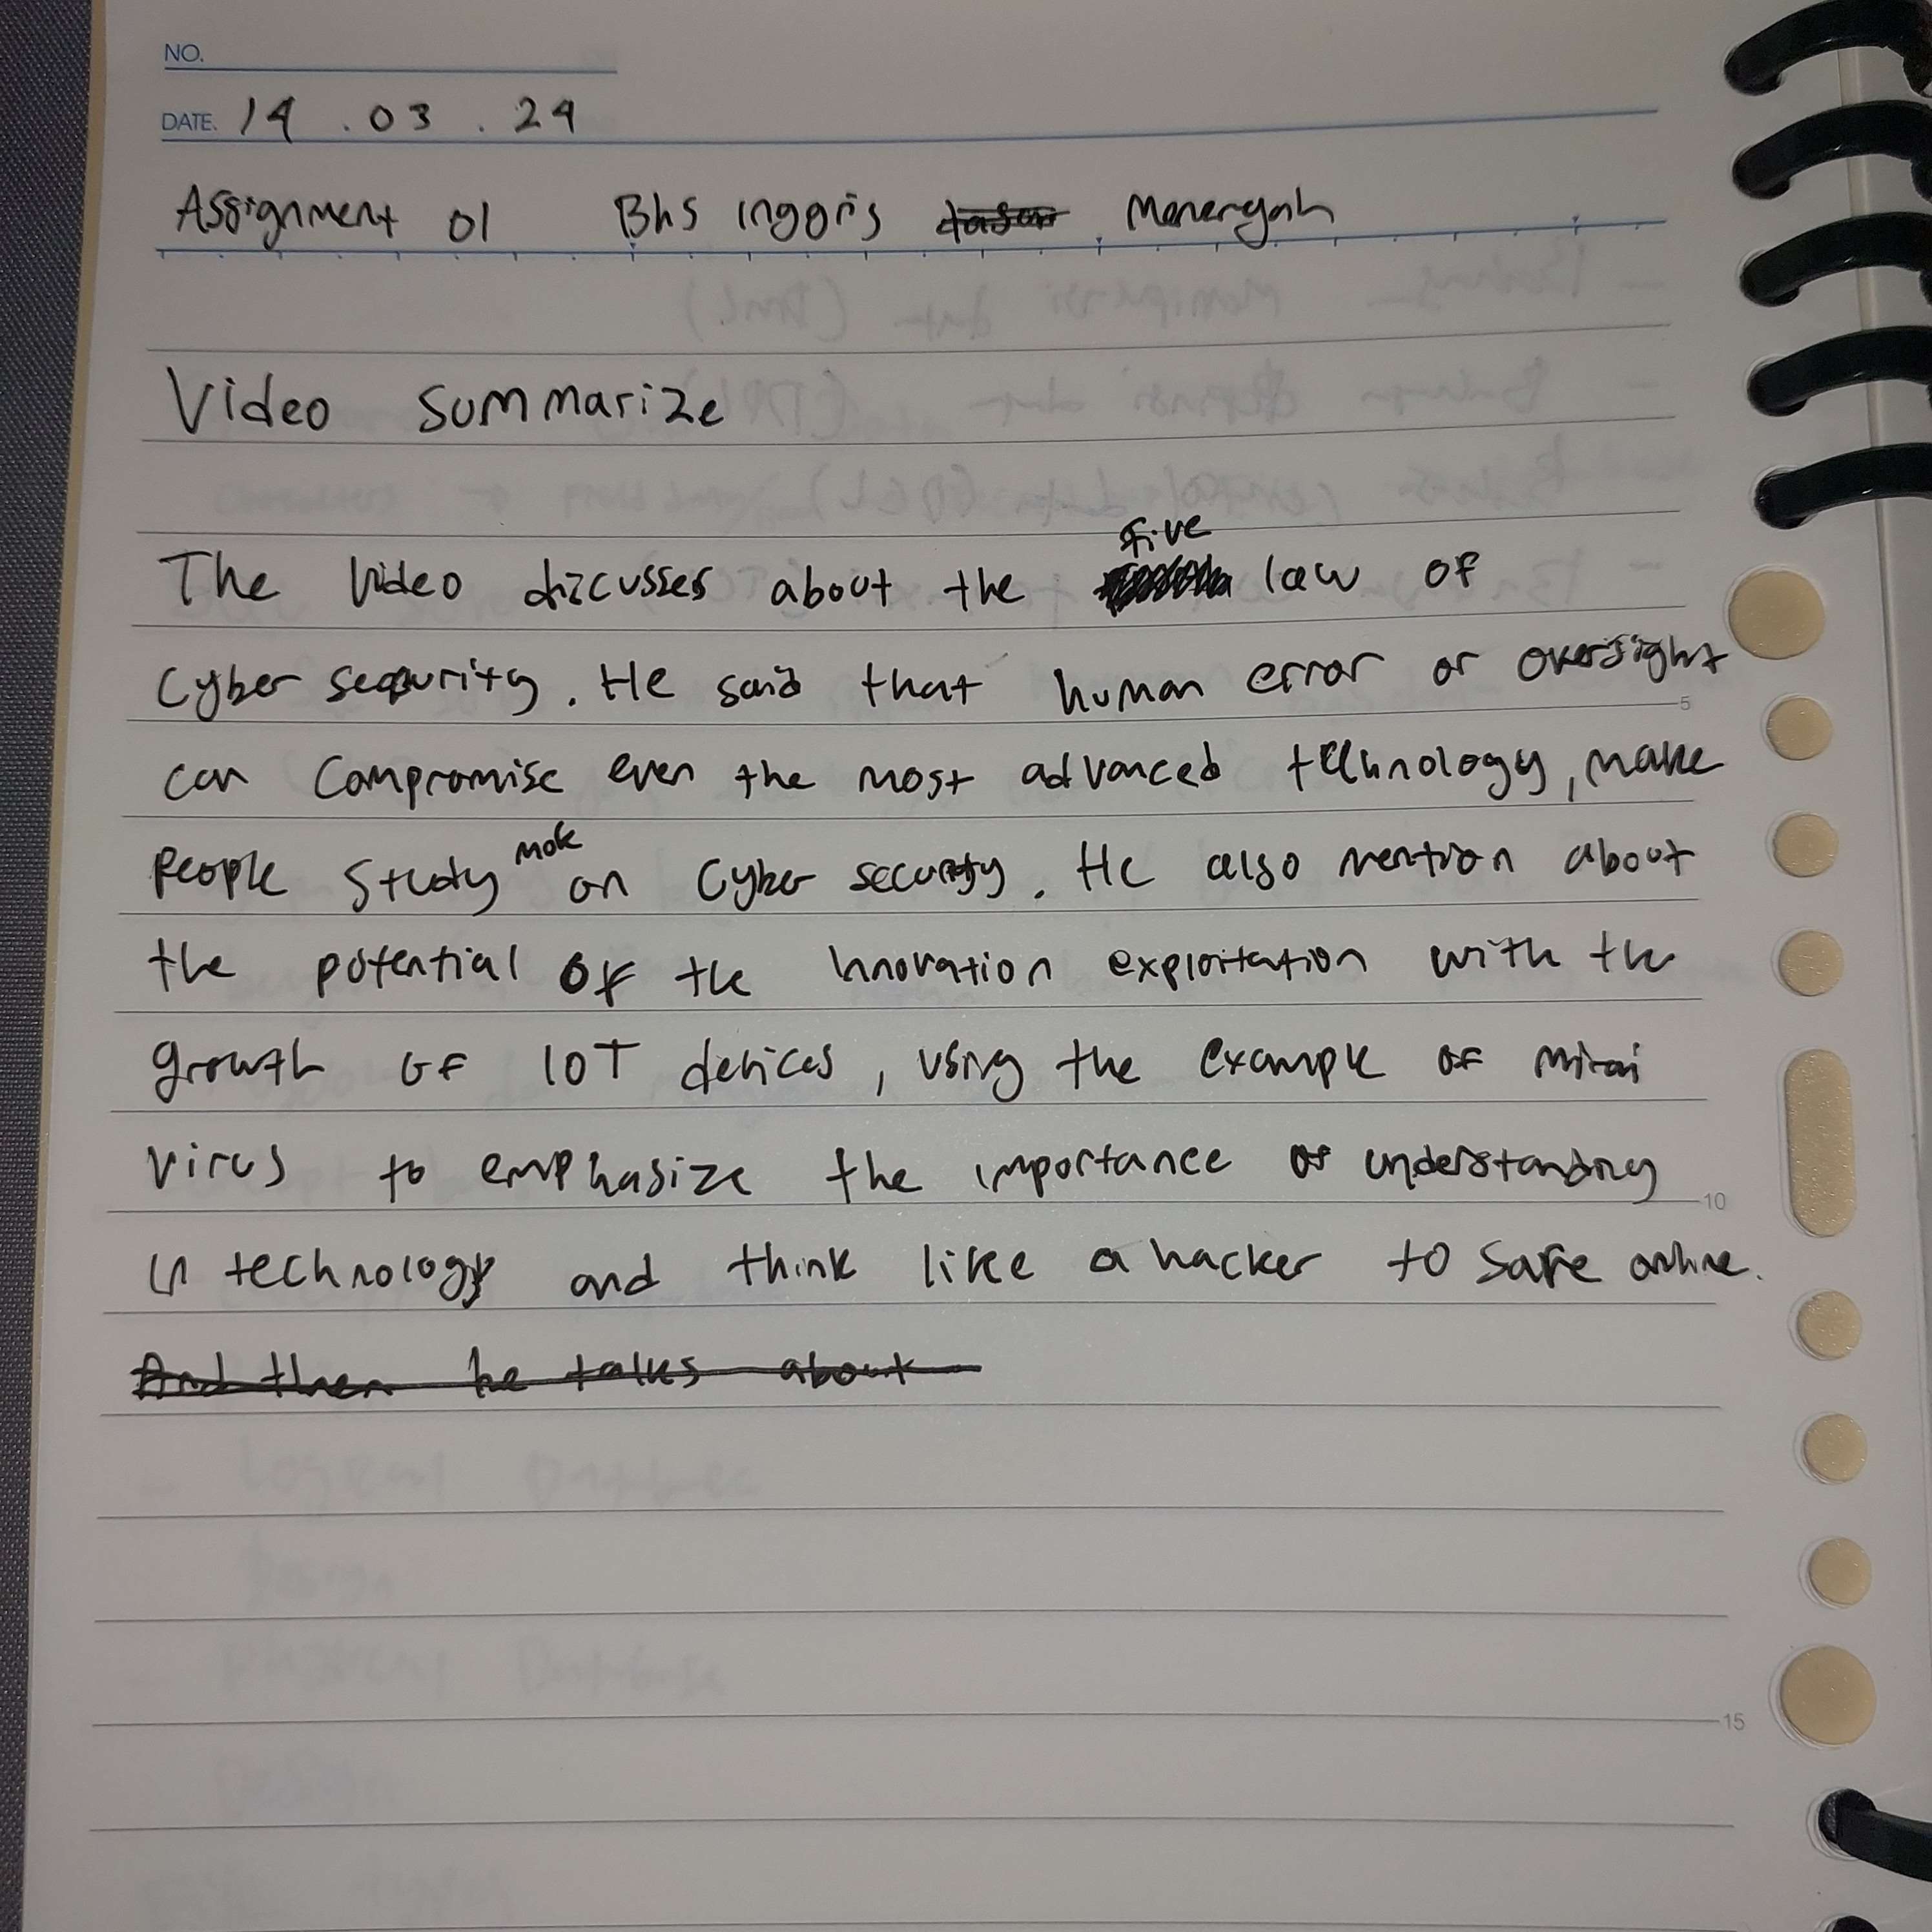 NO.
DATE. 14 . 03 . 24
Assignment 01 Bhs inggris dasar Menengah
Video summarize
five
The video discusses about the law of
Cyber security. He said that human error or oversight
5
can compromise even the most advanced technology, make
more
people study on Cyber security. He also mention about
the potential of the innovation exploitation with the
growth of IOT devices, using the example of mirai
virus to emphasize the importance of understanding
10
in technology and think like a hacker to safe online.
And then he talks about
15